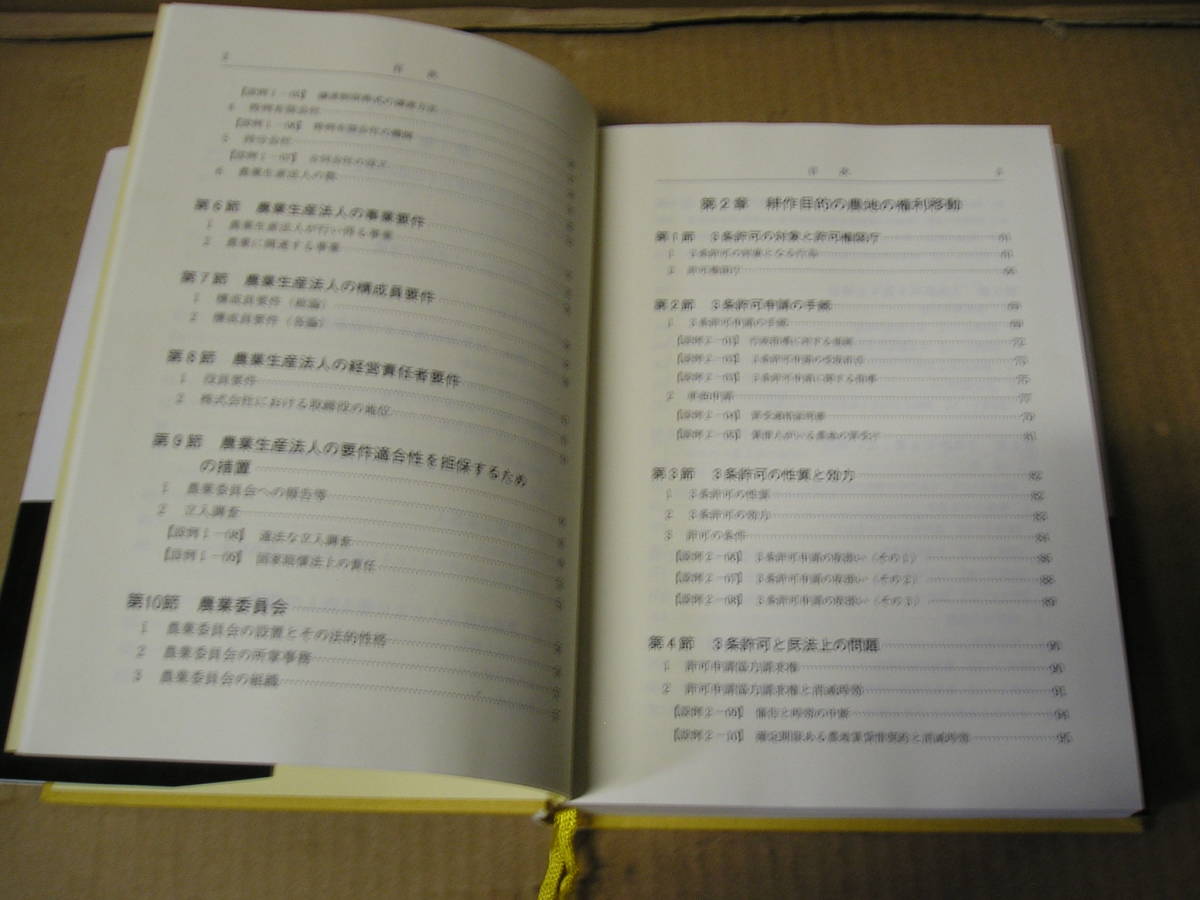 目次
【設例1―05】 譲渡制限株式の譲渡方法
4 特例有限会社
【設例1―06】 特例有限会社の機関
5 持分会社
【設例1―07】 合同会社の設立
6 農業生産法人の数
第6節 農業生産法人の事業要件
1 農業生産法人が行い得る事業
2 農業に関連する事業
第7節 農業生産法人の構成員要件
1 構成員要件(総論)
2 構成員要件(各論)
第8節 農業生産法人の経営責任者要件
1 役員要件
2 株式会社における取締役の地位
第9節 農業生産法人の要件適合性を担保するため
の措置
1 農業委員会への報告等
2 立入調査
【設例1―08】 違法な立入調査
【設例1―09】 国家賠償法上の責任
第10節 農業委員会
1 農業委員会の設置とその法的性格
2 農業委員会の所掌事務
3 農業委員会の組織
目次
第2章 耕作目的の農地の権利移動
第1節 3条許可の対象と許可権限庁 61
1 3条許可の対象となる行為 61
2 許可権限庁
第2節 3条許可申請の手続 69
1 3条許可申請の手続 69
【設例2―01】 行政指導に対する意識 72
【設例2―02】 3条許可申請の受理拒否 73
【設例2―03】 3条許可申請に関する指導 75
2 単独申請 77
【設例2―04】 79
【設例2―05】 賃借人がいる農地の譲受け 81
第3節 3条許可の性質と効力 82
1 3条許可の性質 82
2 3条許可の効力 83
3 許可の条件
【設例2―06】 3条許可申請の取扱い(その1) 86
【設例2―07】 3条許可申請の取扱い(その2) 88
【設例2―08】 3条許可申請の取扱い(その3) 89
第4節 3条許可と民法上の問題 90
1 許可申請協力請求権 90
2 許可申請協力請求権と消滅時効 91
【設例2―09】 催告と時効の中断 94
【設例2―10】 確定期限ある農地賃貸借契約と消滅時効 95